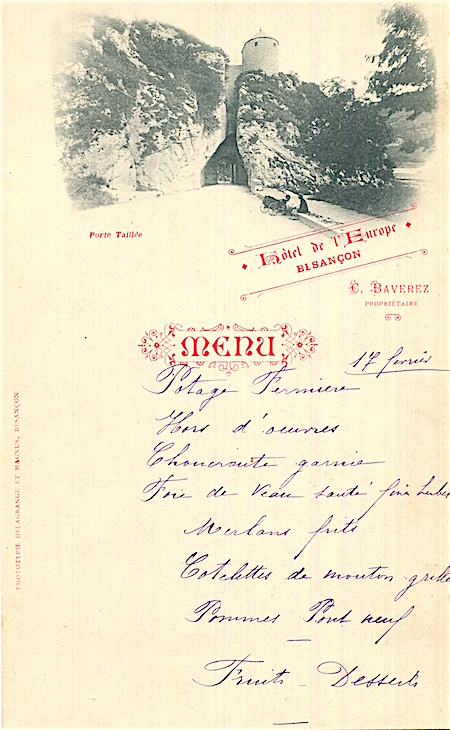 Porte Taillée
Hôtel de l'Europe
BISANÇON
C. BAVEREZ
PROPRIÉTAIRE
MENU
17 février
Potage Fermière
Hors d'oeuvres
Choucroute garnie
Foie de Veau sauté fines herbes
Merlans frits
Cotelettes de mouton grille
Pommes Pont neuf
Fruits - Desserts
PROTOTYPIE DELAGRANGE ET MAGNUS, BISANÇON